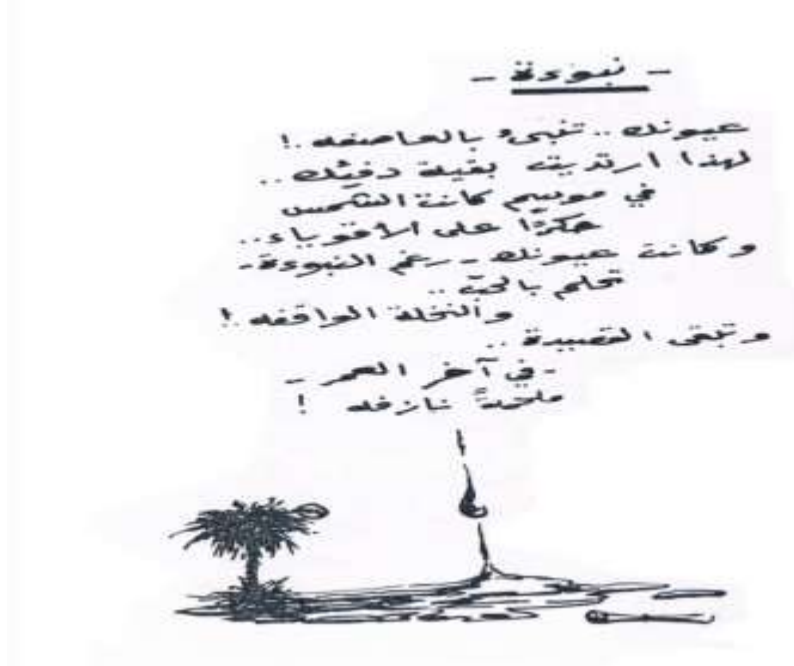 - نبوءة -
عيونك .. تنبىء بالعاصفه .!
لهذا ارتديت بقية دفئك ..
في موسم كانت الشمس
حكرًا على الأقوياء ..
وكانت عيونك - رغم النبوءة -
تحلم بالحبّ ..
والنخلة الواقفه .!
وتبقى القصيدة ..
- في آخر العمر -
ملحمةً نازفه !